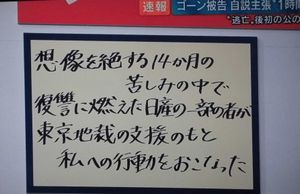 速報
ゴーン被告 自説主張"1時間
"逃亡"後初の公の
想像を絶する14か月の
苦しみの中で
復讐に燃えた日産の一部の者が
東京地裁の支援のもと
私への行動をおこなった